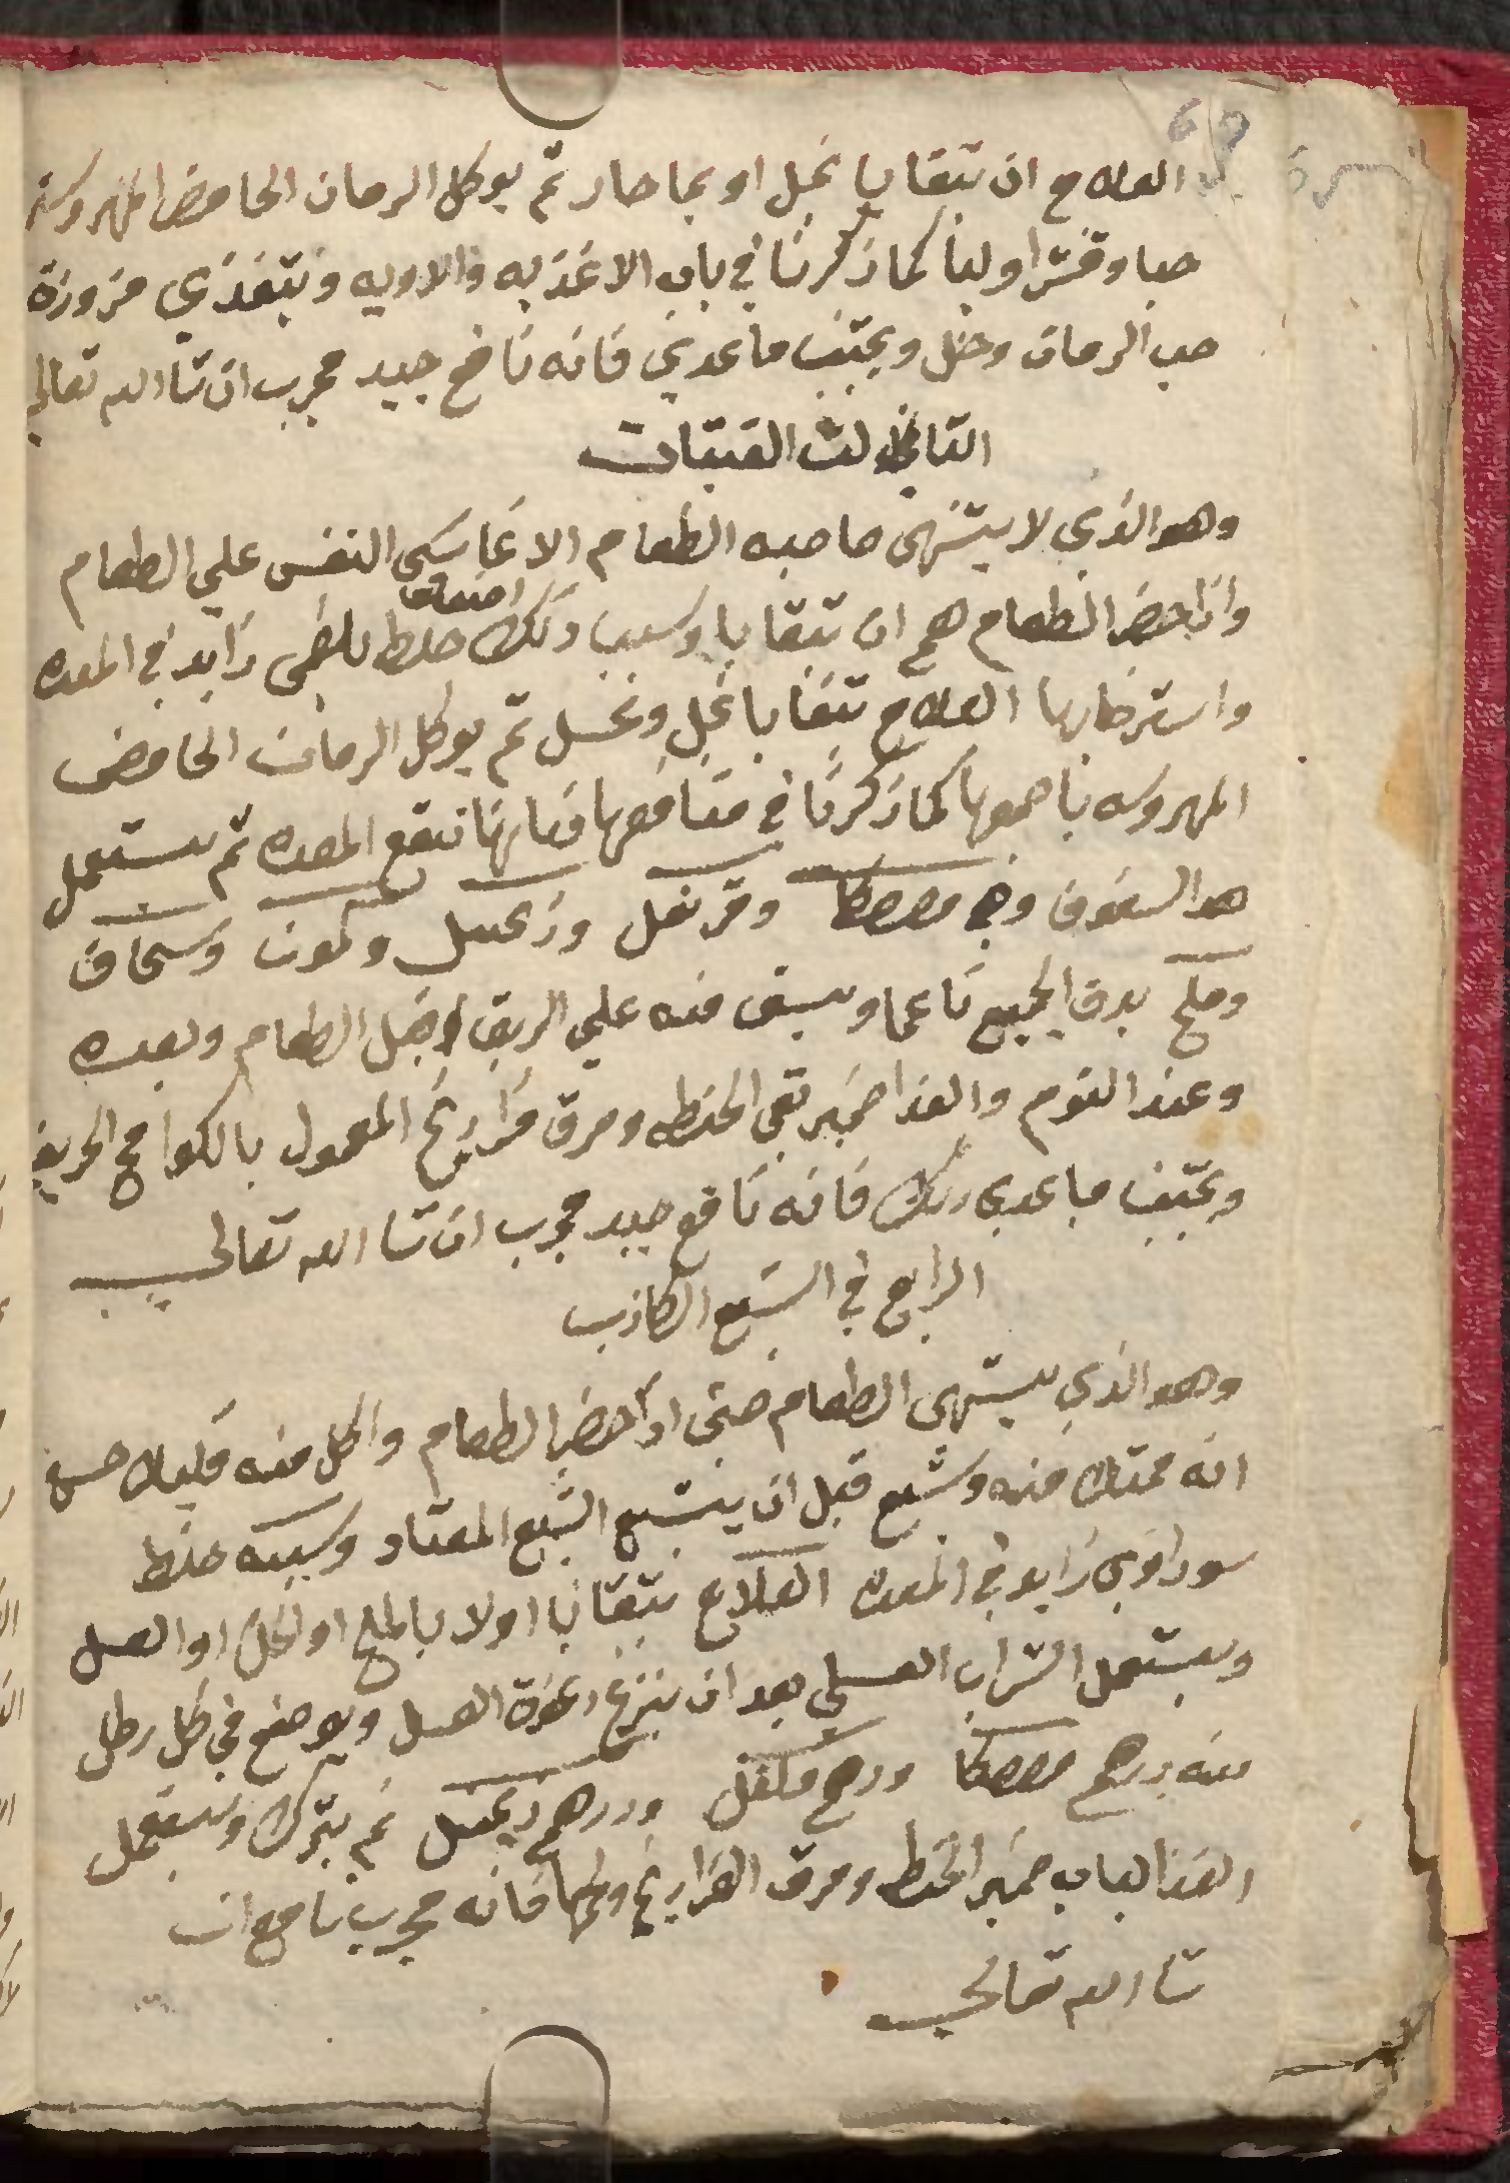 العلاج ان يتقايا بخل او بما حار ثم يوكل الرمان الحامض المهروسة
حبا وقشرا ولبنا كما ذكرنا في باب الاغذيه والادويه ويتغذي مزورة
حب الرمان وخل ويجتنب ما عدي فانه نافع جيد مجرب ان شا الله تعالي
الثالث القيتات
وهو الذي لا يشتهى صاحبه الطعام الا غاسى النفس علي الطعام
واذا حضر الطعام هم ان يتقايا وسبب ذلك خلط بلغمى زايد في المعده
واسترخايها العلاج يتقايا بخل وعسل ثم يوكل الرمان الحامض
المهروسه باجمعها كما ذكرنا في منافعها فانها تنفع المعده ثم يستعمل
هدا السفوف وهو مصطكا وقرنفل وزنجبيل وكمون وسماق
وملح يدق الجميع ناعما ويسف منه علي الريق وقبل الطعام وبعده
وعند النوم والغذا خبز نقى الحنطه ومرق فراريج المعمول بالكوامخ الحريفه
ويجتنب ما عدي ذلك فانه نافع جيد مجرب ان شا الله تعالي
الرابع في الشبع الكاذب
وهو الذي يشتهى الطعام حتى اذا حضر الطعام واكل منه قليلا حس
انه ممتلا منه وشبع قبل ان يشبع الشبع المعتاد وسببه خلط
سوداوي زايد في المعده العلاج يتقايا اولا بالملح او الخل او العسل
ويستعمل الشراب العسلي بعد ان ينزع رغوة العسل ويوضع في كل رطل
منه درهم مصطكا ودرهم فلفل ودرهم زنجبيل ثم يترك ويستعمل
الغذا لباب خبز الحنطه ومرق الفراريج ولحمها فانه مجرب نافع ان
شا الله تعالي